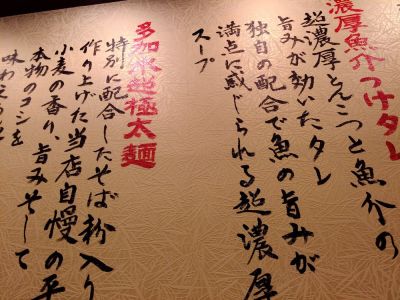 濃厚魚介つけタレ
超濃厚とんこつと魚介の
旨みが効いたタレ
独自の配合で魚の旨みが
満点に感じられる超濃厚
スープ
多加水超極太麺
特別に配合したそば粉入り
作り上げた当店自慢の平
小麦の香り、旨みそして
本物のコシを
味わえる